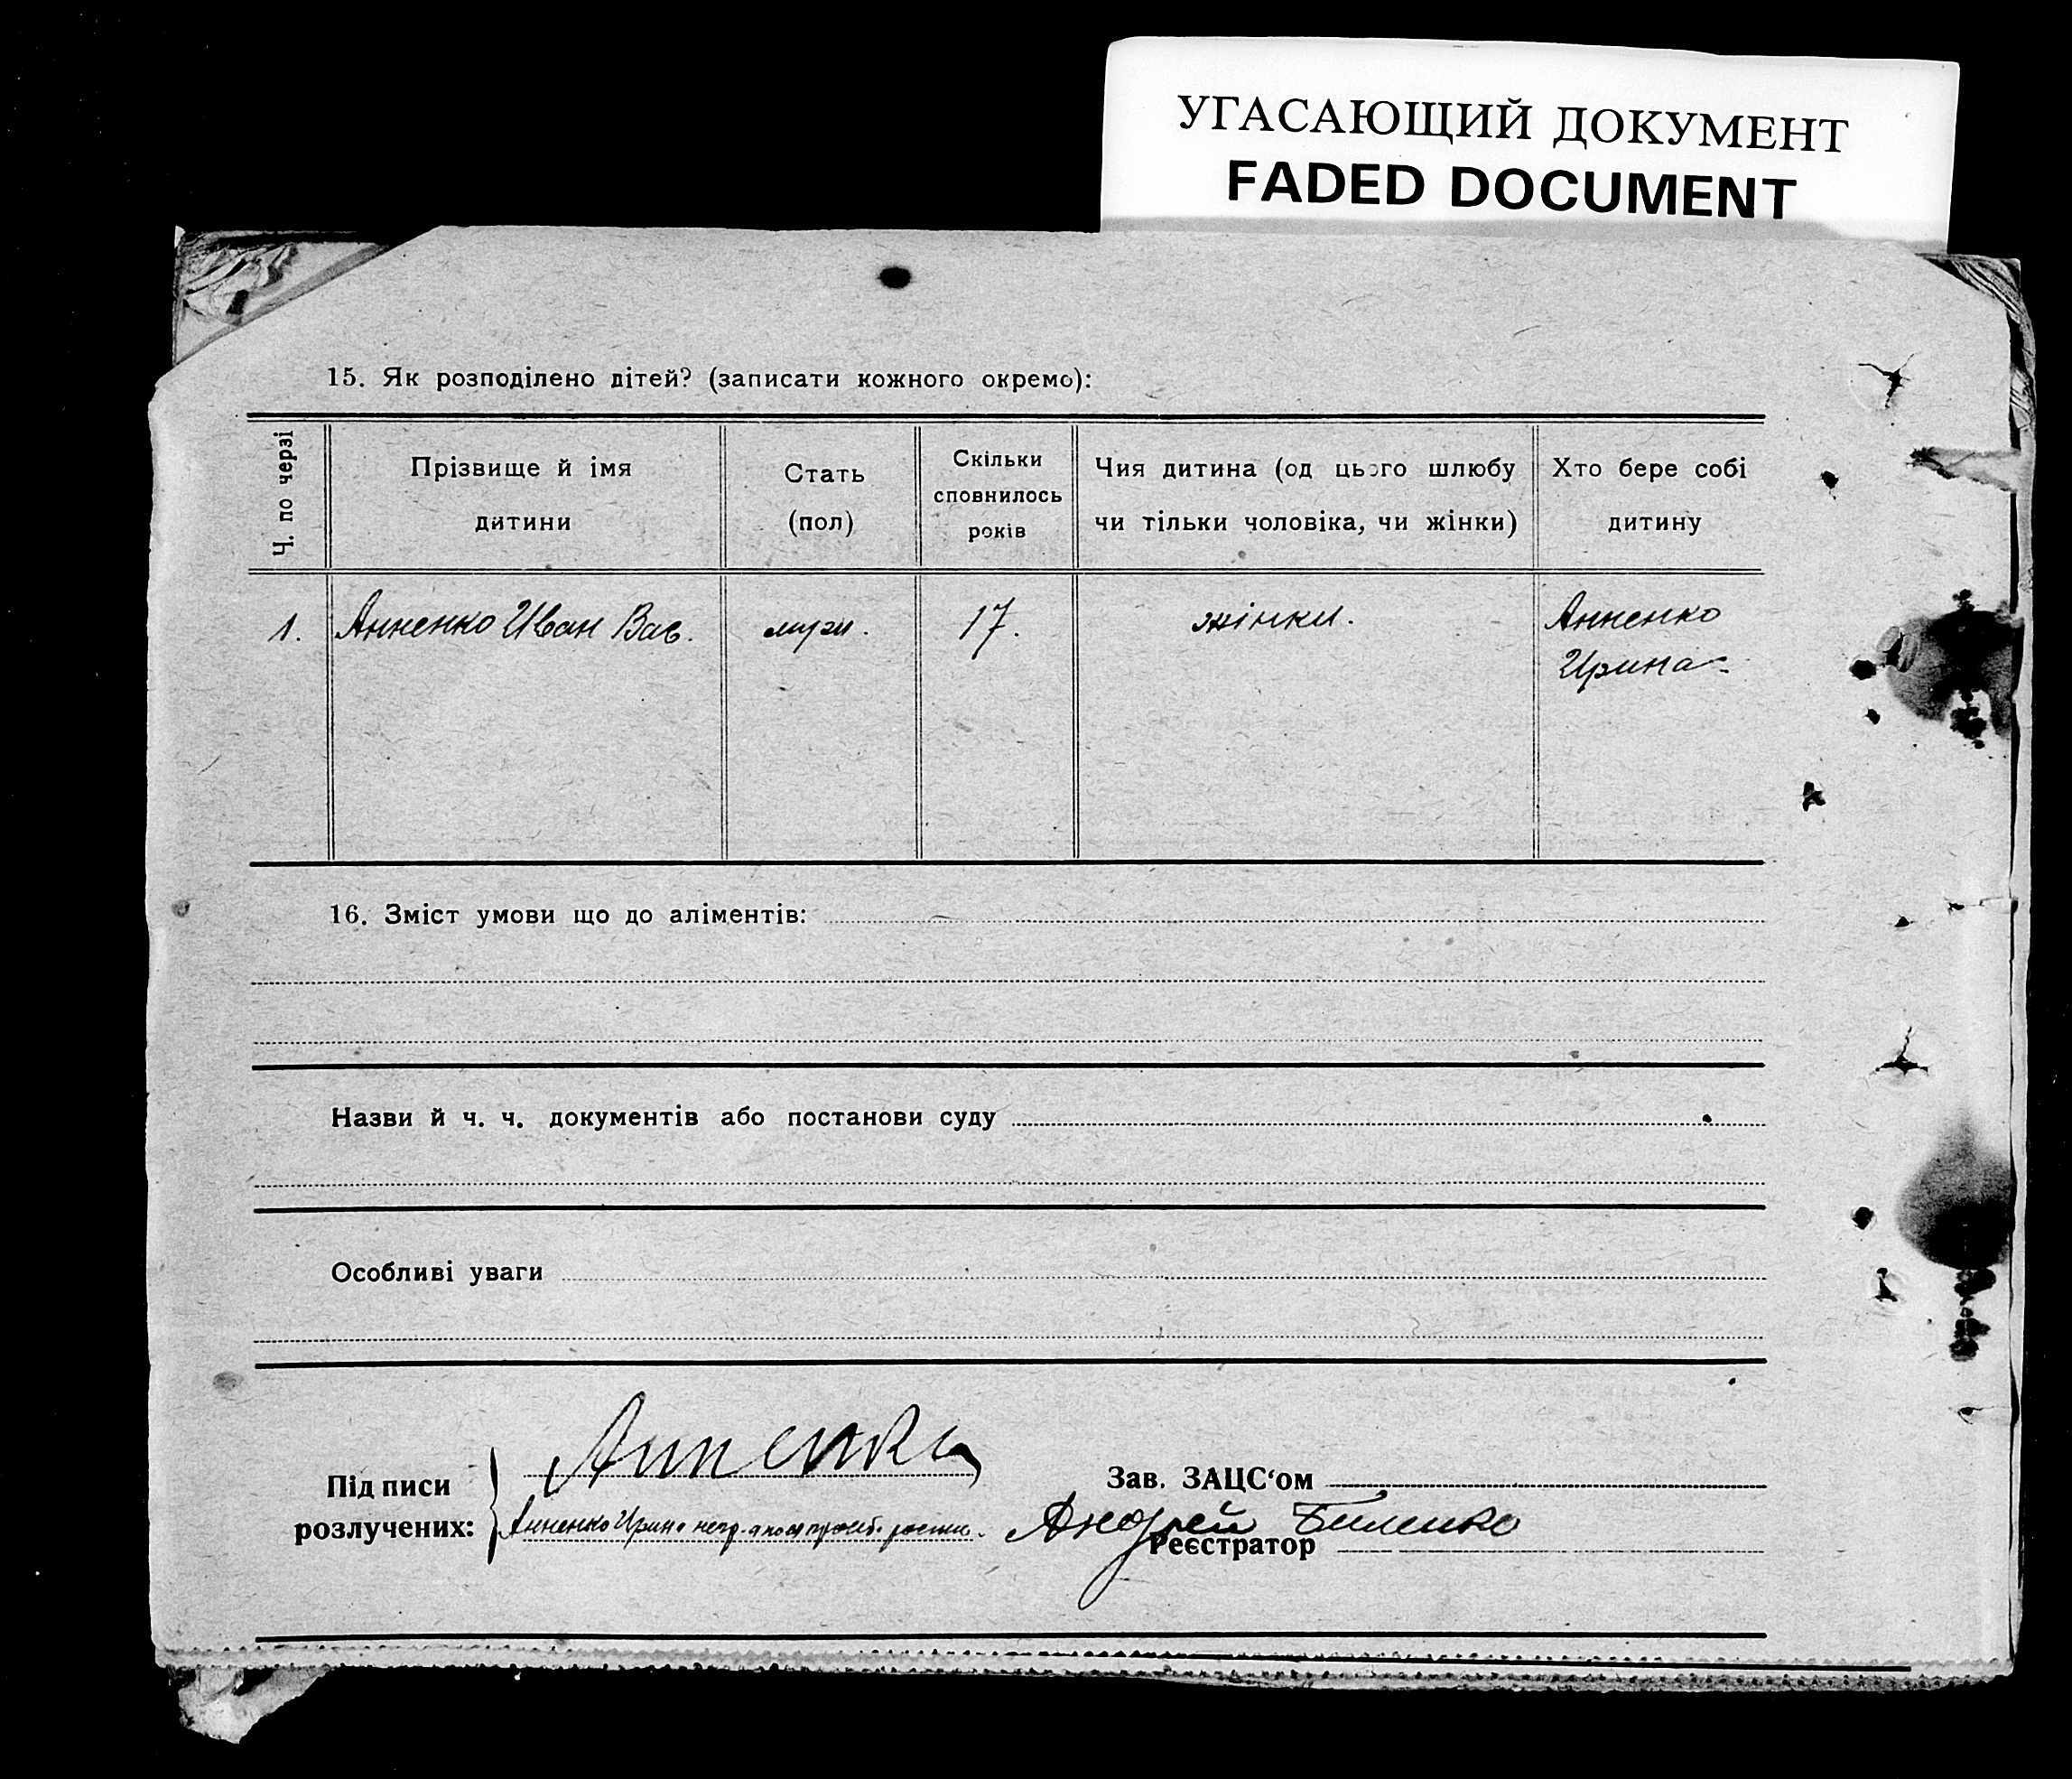 УГАСАЮЩИЙ ДОКУМЕНТ
FADED DOCUMENT
15. Як розподілено дітей? (записати кожного окремо):
Ч. по черзі
Прізвище й імя
дитини
Стать
(пол)
Скільки
сповнилось
років
Чия дитина (од цього шлюбу
чи тільки чоловіка, чи жінки)
Хто бере собі
дитину
1. Анненко Иван Вас. муж. 17. жінки. Анненко
Ирина
16. Зміст умови що до аліментів:
Назви й ч. ч. документів або постанови суду
Особливі уваги
Анненко
Підписи
розлучених:
Анненко Ирина негр.
Зав. ЗАЦС‘ом
Андрей Биленко
Реєстратор